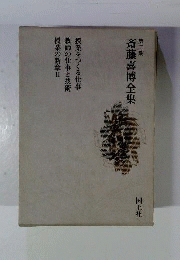 斎藤喜博全集
授業をつくる仕事
教師の仕事と技術
授業の散策Ⅱ
国土社